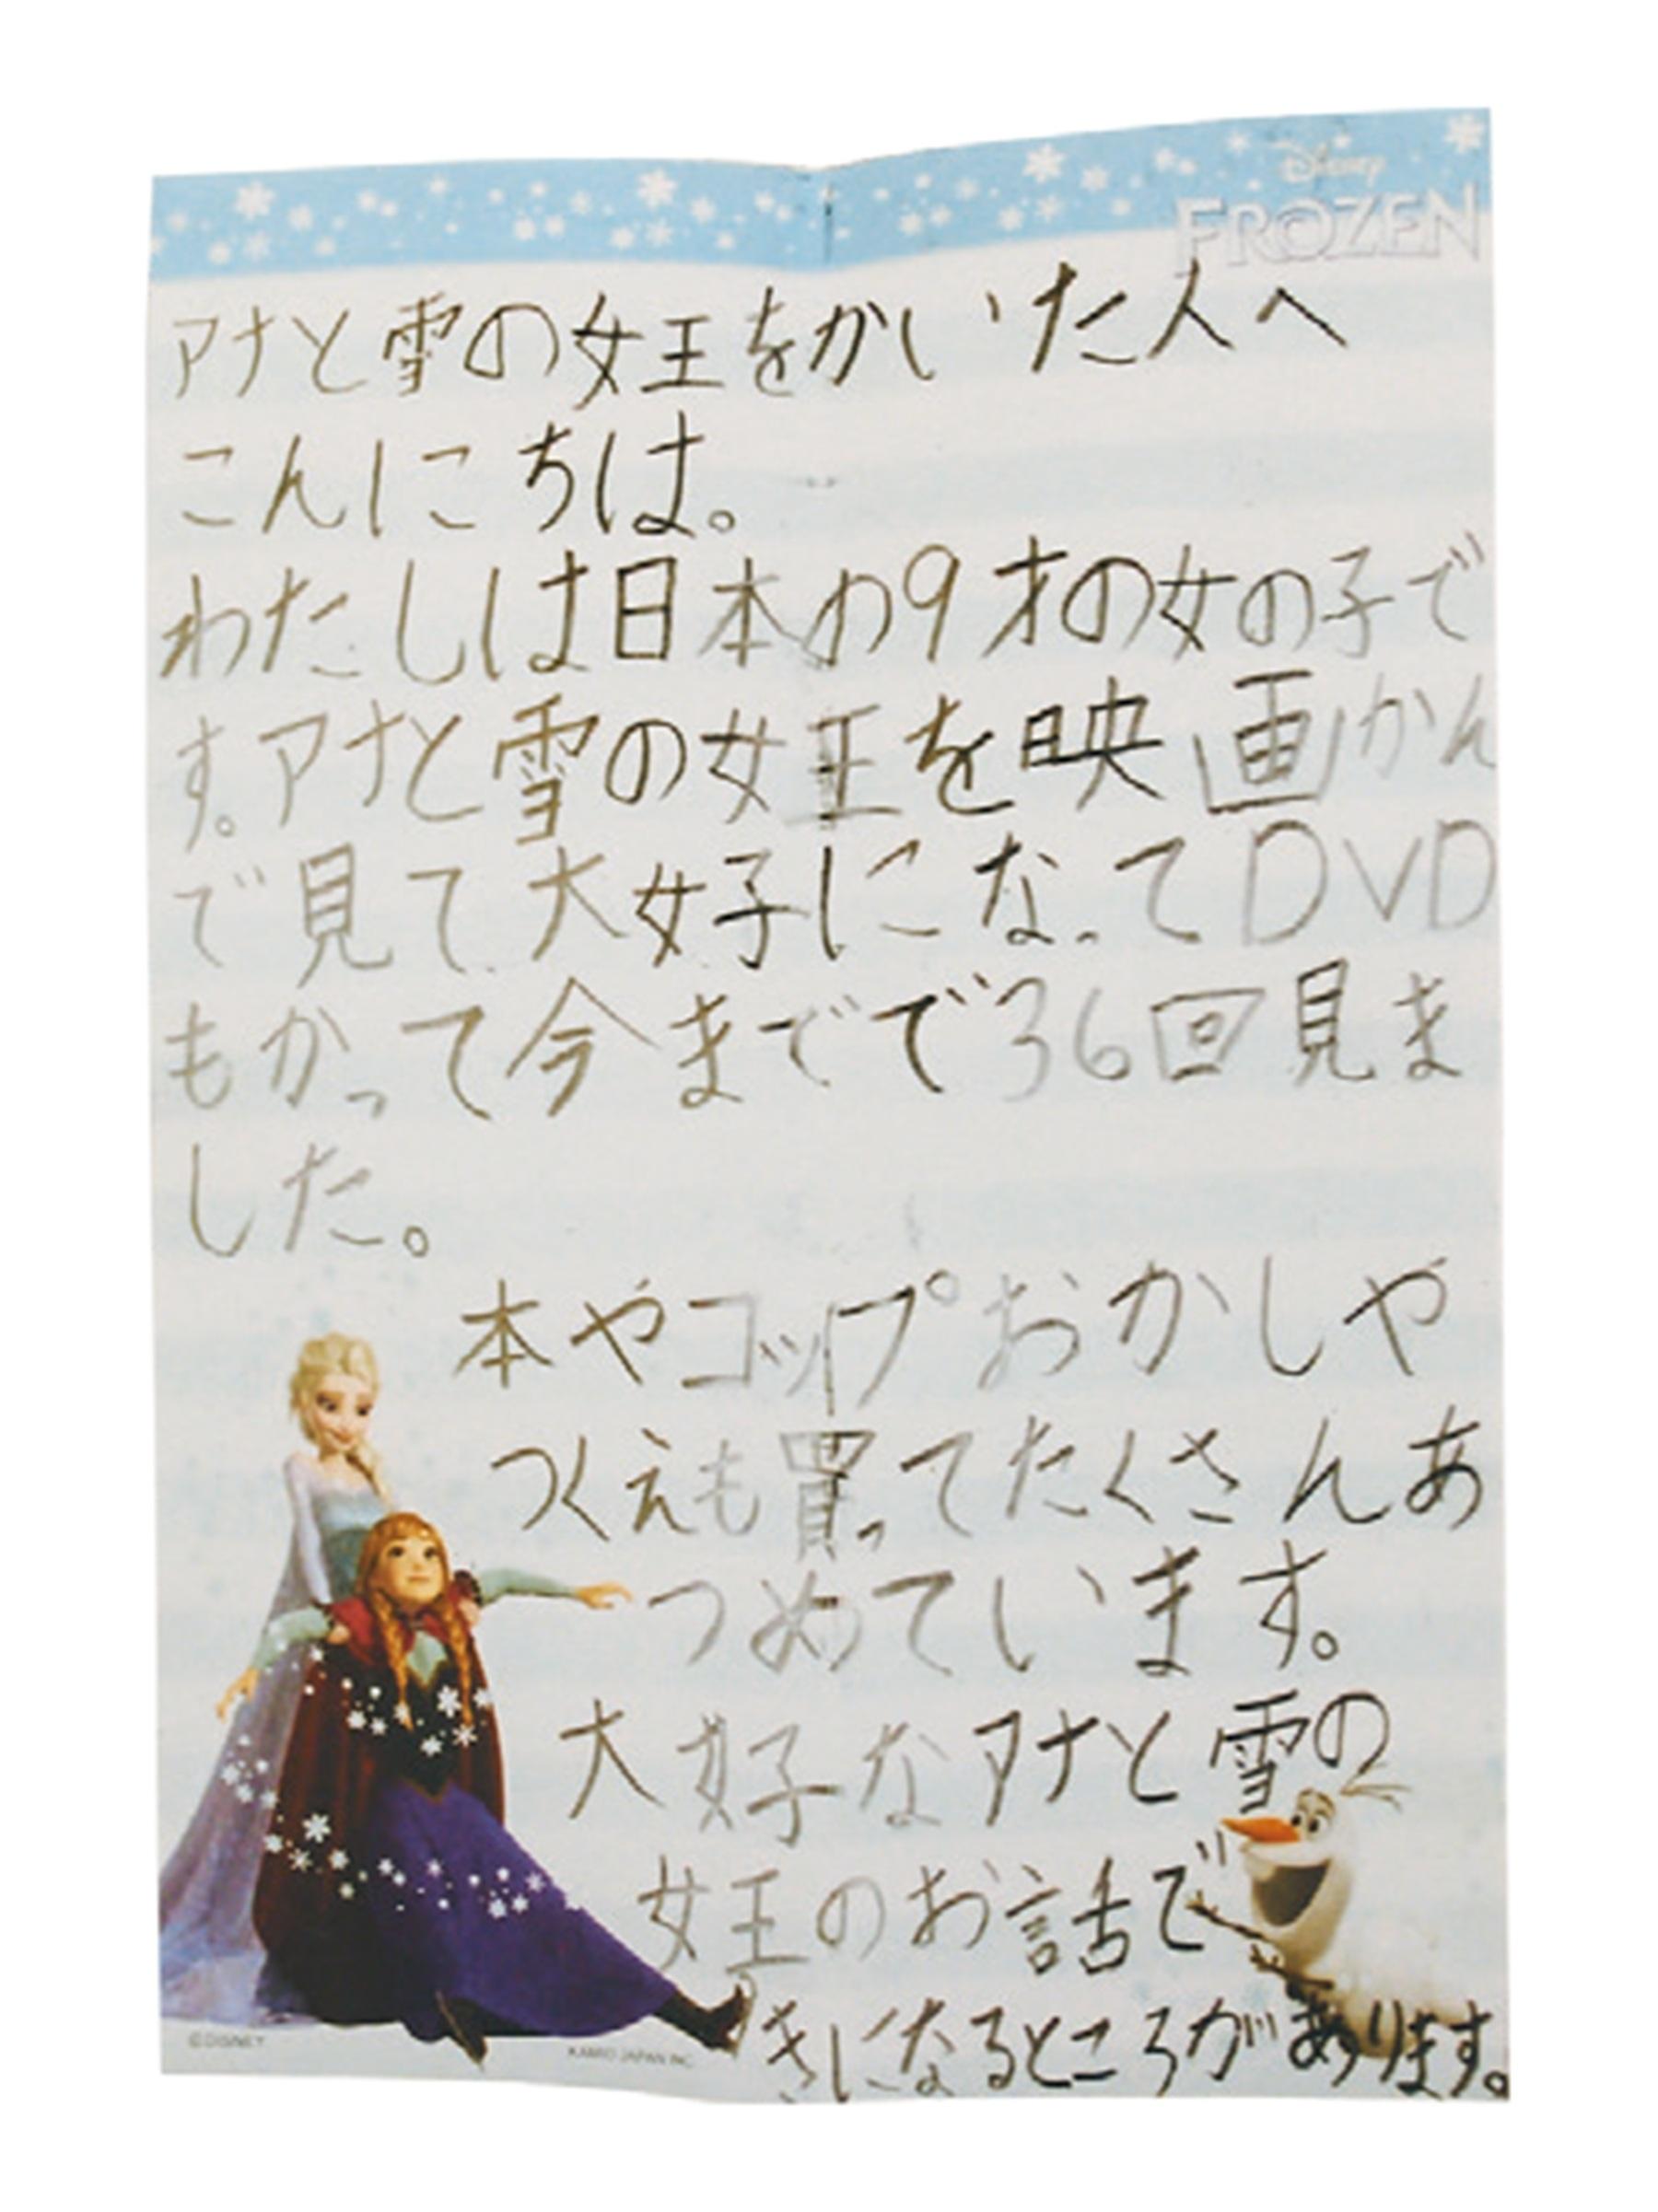 Disney
FROZEN
アナと雪の女王をかいた人へ
こんにちは。
わたしは日本の9才の女の子で
す。アナと雪の女王を映画かん
で見て大好になってDVD
もかって今までで36回見ま
した。
本やコップおかしや
つくえも買ってたくさんあ
つめています。
大好なアナと雪の
女王のお話で
きになるところがあります。
©DISNEY
KAMIO JAPAN INC